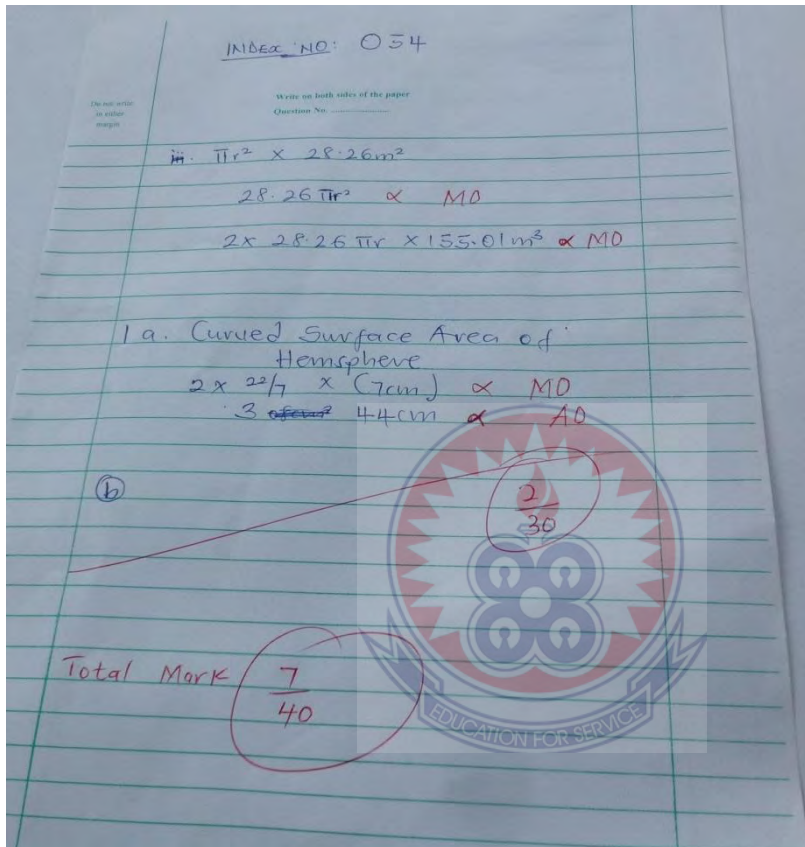 INDEX NO: 054
Do not write
in either
margin
Write on both sides of the paper
Question No. ....................
iii. πr² × 28.26m²
28.26 πr² ∝ M0
2× 28.26 πr × 155.01m³ ∝ M0
1a. Curved Surface Area of
Hemsphere
2 × 22/7 × (7cm) ∝ M0
3 44cm ∝ A0
b
2
30
Total Mark 7
40
EDUCATION FOR SERVICE